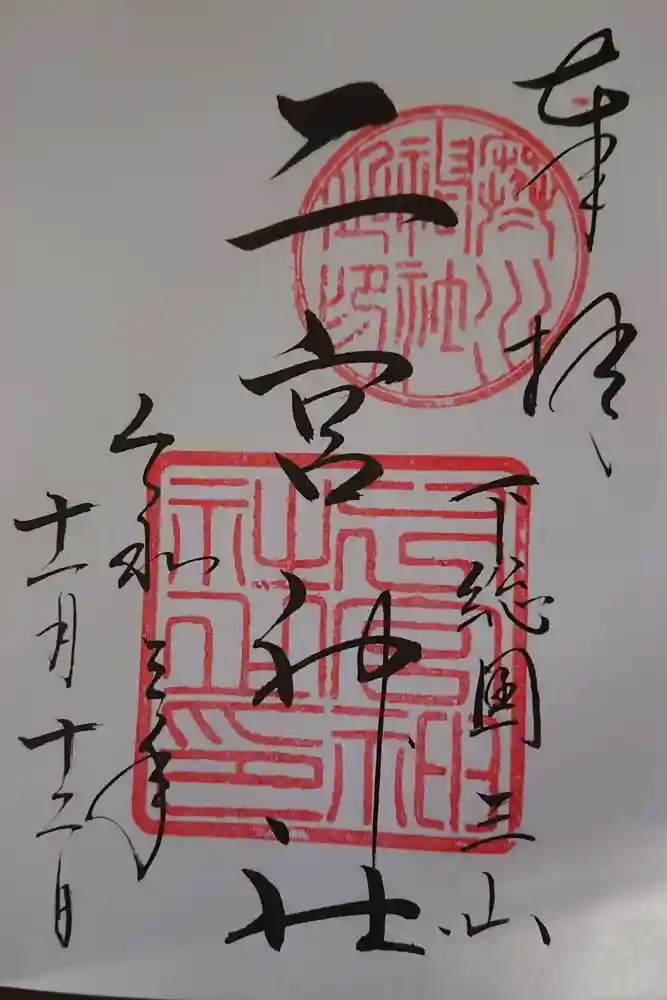 奉拝
下総國三山
二宮神社
令和三年
十一月十二日